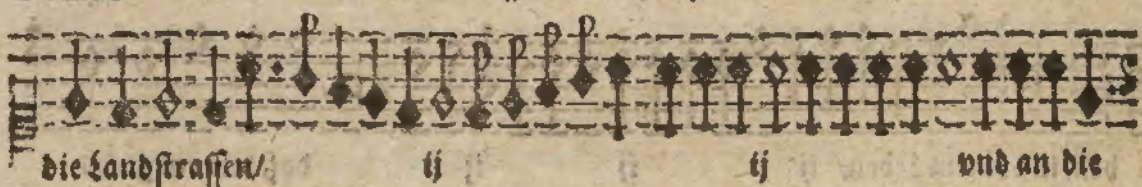 die Landſtraſſen/ ij ij vnd an die